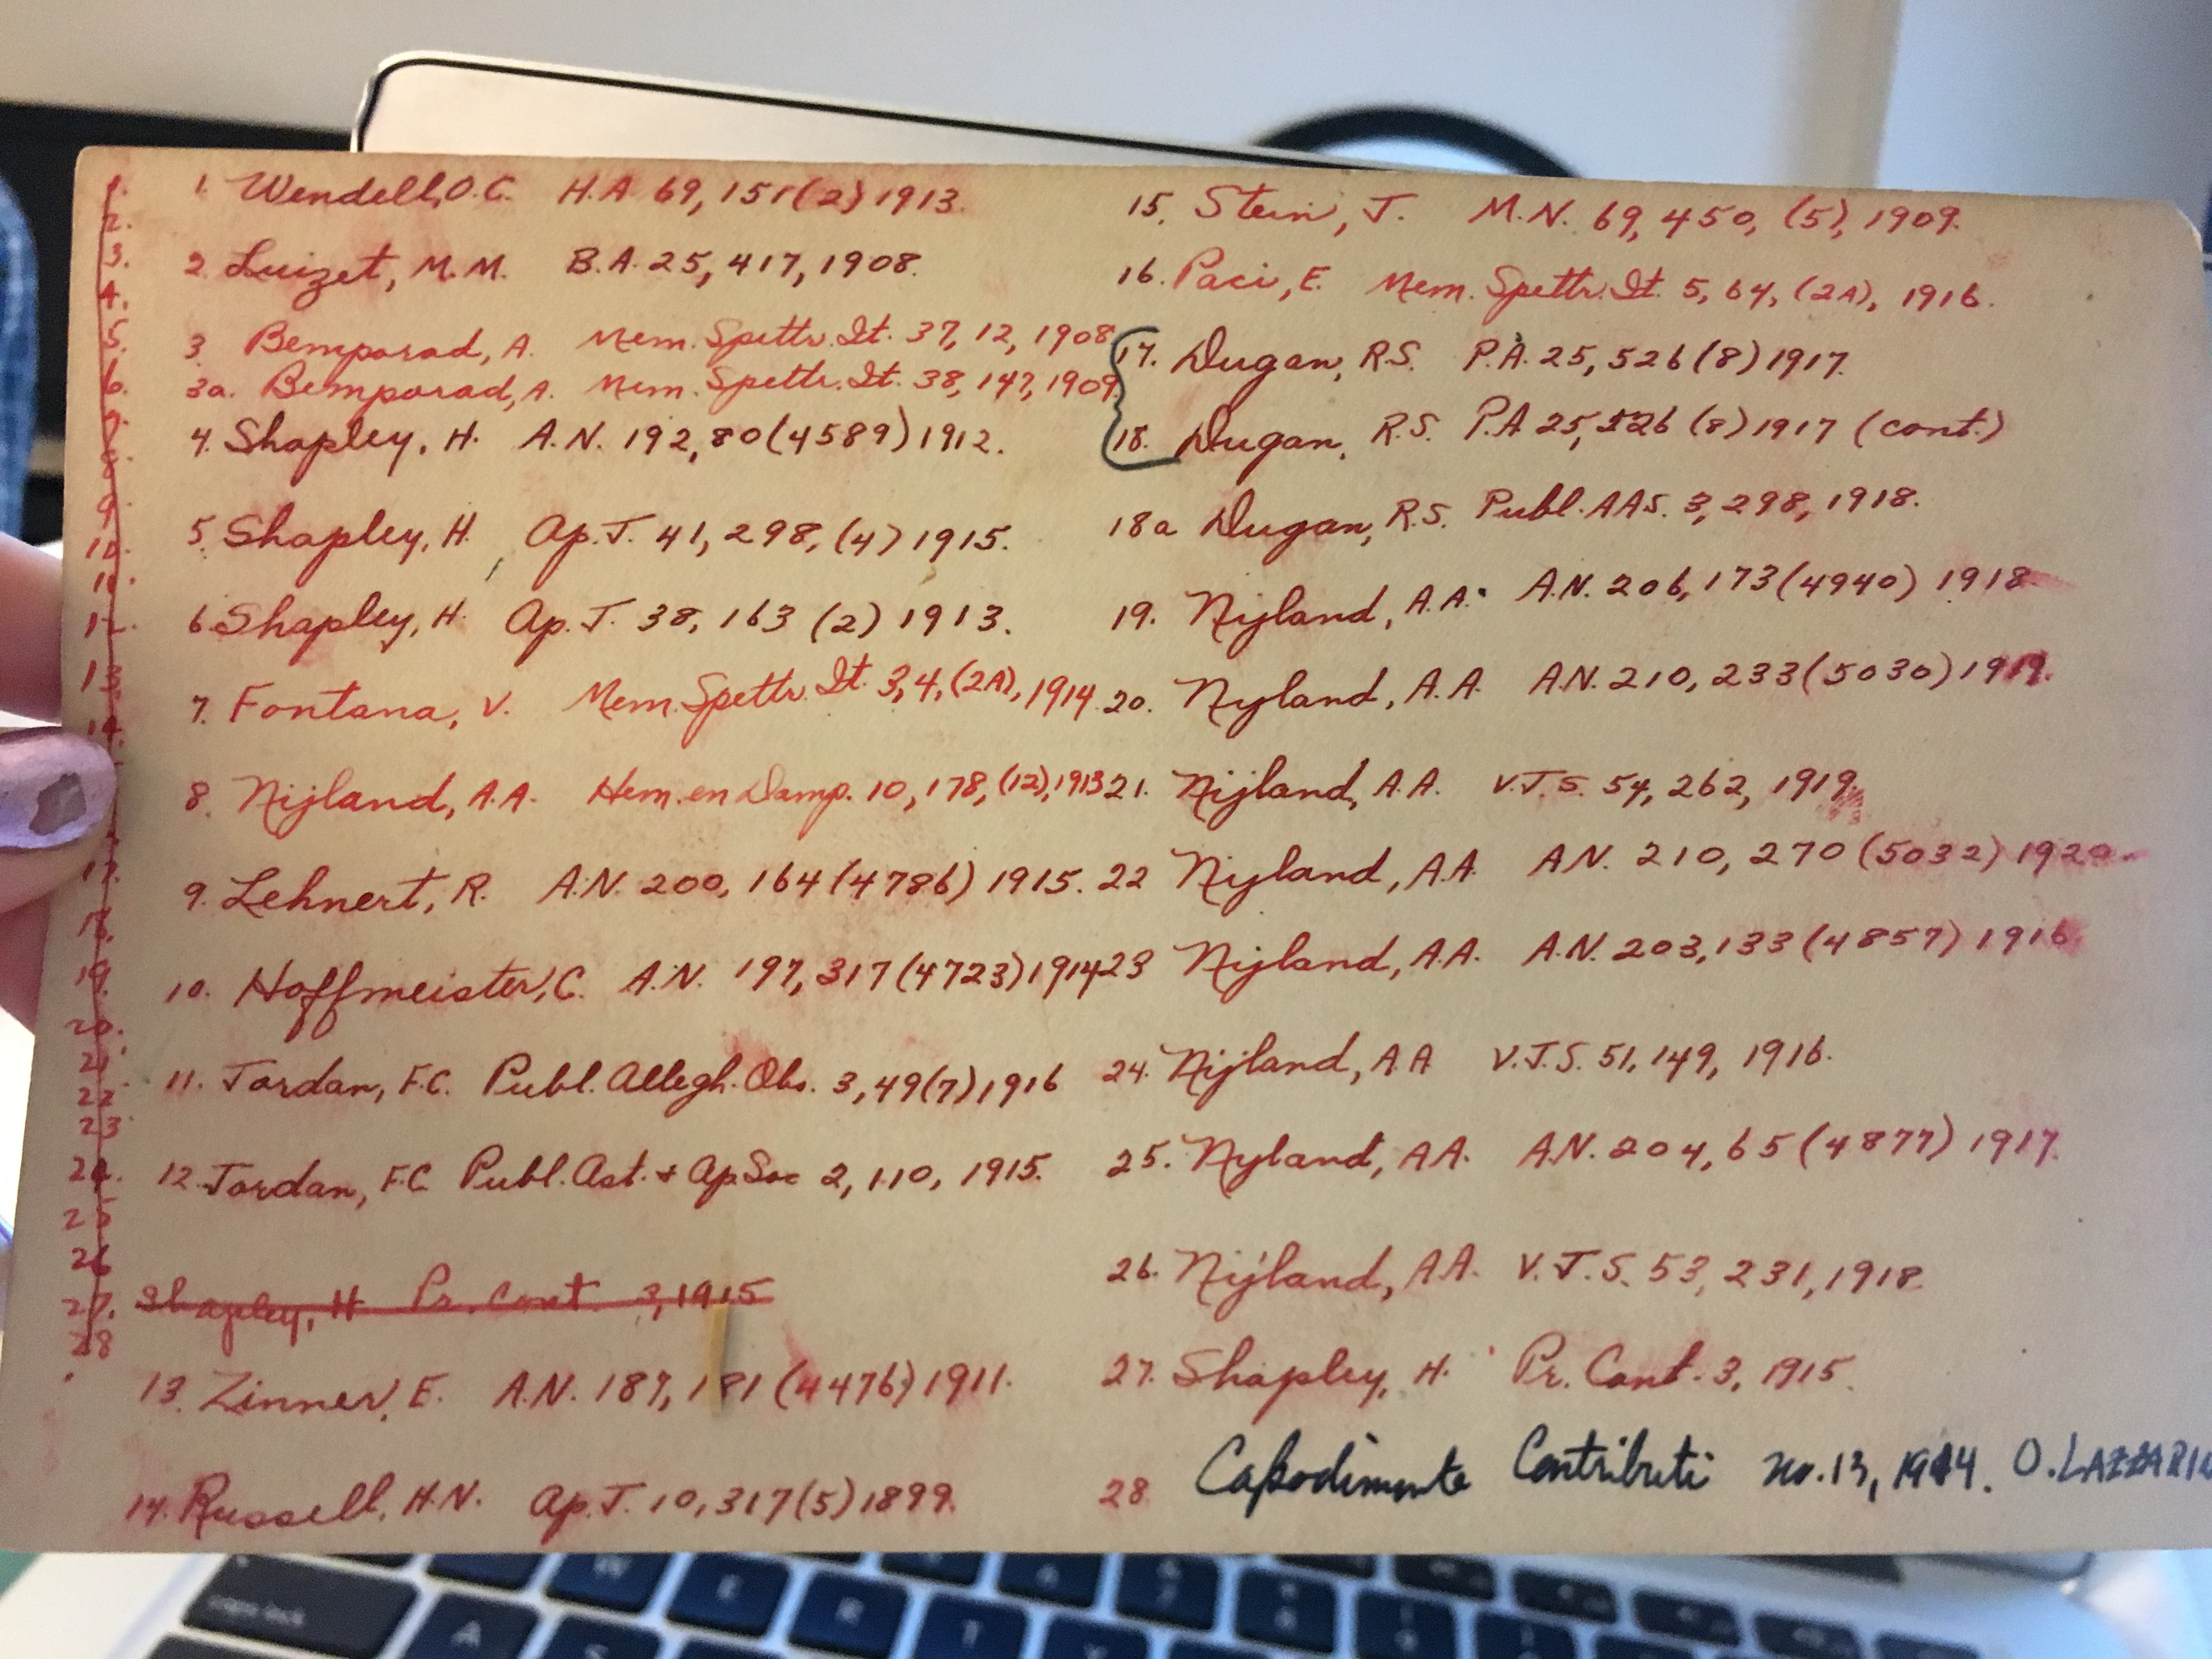 1.
2.
3.
4.
5.
6.
7.
8.
9.
10.
11.
12.
13
14.
17.
18.
19.
20.
21
22
23
24.
25
26
27.
28
1. Wendell, O.C. H.A. 69, 151(2) 1913.
2. Luizet, M.M. B.A. 25, 417, 1908.
3. Bemporad, A. Mem. Spettr. It. 37, 12, 1908
3a. Bemporad, A. Mem. Spettr. It. 38, 147, 1909.
4. Shapley, H. A.N. 192, 80(4589) 1912.
5. Shapley, H. Ap. J. 41, 298, (4) 1915.
6. Shapley, H. Ap. J. 38, 163 (2) 1913.
7. Fontana, V. Mem. Spettr. It. 3, 4, (2A), 1914.
8. Nijland, A.A. Hem. en Damp. 10, 178, (12), 1913
9. Lehnert, R. A.N. 200, 164 (4786) 1915.
10. Hoffmeister, C. A.N. 197, 317 (4723) 1914
11. Jordan, F.C. Publ. Allegh. Obs. 3, 49(7) 1916
12. Jordan, F.C. Publ. Ast. + Ap Soc 2, 110, 1915.
Shapley, H Pr. Cont. 3, 1915
13. Zinner, E. A.N. 187, 181 (4476) 1911.
14. Russell, H.N. Ap. J. 10, 317(5) 1899.
15. Stein, J. M.N. 69, 450, (5), 1909.
16. Paci, E. Mem. Spettr. It. 5, 64, (2A), 1916.
17. Dugan, R.S. P.A. 25, 526 (8) 1917.
18. Dugan, R.S. P.A 25, 526 (8) 1917 (cont.)
18a Dugan, R.S. Publ. AAS. 3, 298, 1918.
19. Nijland, A.A. A.N. 206, 173 (4940) 1918
20. Nyland, A.A A.N. 210, 233 (5030) 1919.
21. Nijland, A.A. V.J.S. 54, 262, 1919.
22 Nijland, A.A. A.N. 210, 270 (5032) 1920
23 Nijland, A.A. A.N. 203, 133 (4857) 1916.
24. Nijland, A.A V.J.S. 51, 149, 1916.
25. Nyland, A.A. A.N. 204, 65 (4877) 1917.
26. Nijland, A.A. V.J.S. 53, 231, 1918.
27. Shapley, H. Pr. Cont. 3, 1915.
28. Capodimonte Contributi no. 13, 1944. O. LAZZARIN
caps lock
W
E
R
A
T
Y